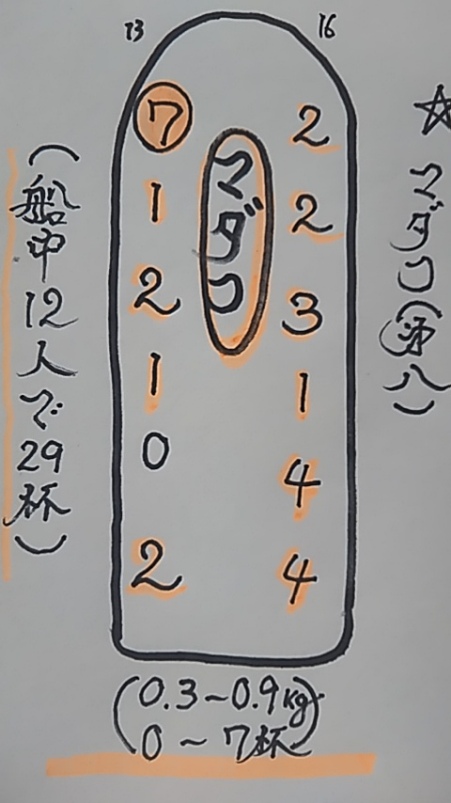 13 16
☆マダコ(沖八)
マダコ
7 2
1 2
2 3
1 1
0 4
2 4
(船中12人で29杯)
(0.3~0.9kg)
0~7杯